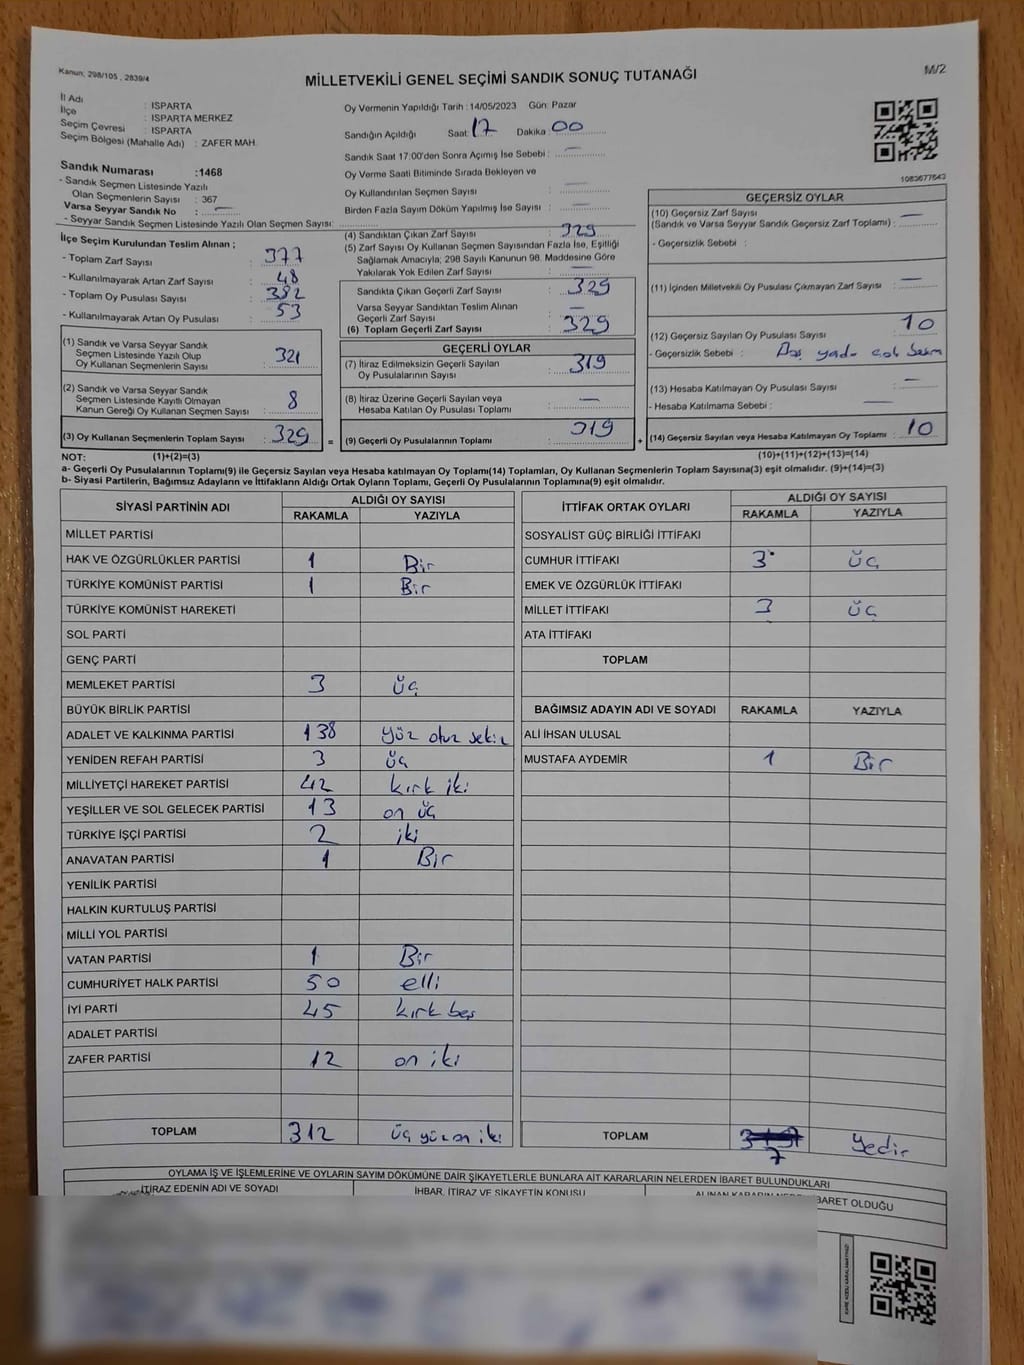 Kanun; 298/105 , 2839/4
MİLLETVEKİLİ GENEL SEÇİMİ SANDIK SONUÇ TUTANAĞI
M/2
İl Adı : ISPARTA
İlçe : ISPARTA MERKEZ
Seçim Çevresi : ISPARTA
Seçim Bölgesi (Mahalle Adı) : ZAFER MAH.
Sandık Numarası :1468
- Sandık Seçmen Listesinde Yazılı
Olan Seçmenlerin Sayısı : 367
Varsa Seyyar Sandık No : —
- Seyyar Sandık Seçmen Listesinde Yazılı Olan Seçmen Sayısı:
Oy Vermenin Yapıldığı Tarih :14/05/2023 Gün: Pazar
Sandığın Açıldığı Saat: 17 Dakika : 00
Sandık Saat 17:00'den Sonra Açımış İse Sebebi : —
Oy Verme Saati Bitiminde Sırada Bekleyen ve
Oy Kullandırılan Seçmen Sayısı : —
Birden Fazla Sayım Döküm Yapılmış İse Sayısı : —
1083677643
İlçe Seçim Kurulundan Teslim Alınan ;
- Toplam Zarf Sayısı : 377
- Kullanılmayarak Artan Zarf Sayısı : 48
- Toplam Oy Pusulası Sayısı : 382
- Kullanılmayarak Artan Oy Pusulası : 53
(1) Sandık ve Varsa Seyyar Sandık
Seçmen Listesinde Yazılı Olup
Oy Kullanan Seçmenlerin Sayısı : 321
(2) Sandık ve Varsa Seyyar Sandık
Seçmen Listesinde Kayıtlı Olmayan
Kanun Gereği Oy Kullanan Seçmen Sayısı : 8
(3) Oy Kullanan Seçmenlerin Toplam Sayısı : 329
(4) Sandıktan Çıkan Zarf Sayısı : 329
(5) Zarf Sayısı Oy Kullanan Seçmen Sayısından Fazla İse, Eşitliği
Sağlamak Amacıyla; 298 Sayılı Kanunun 98. Maddesine Göre
Yakılarak Yok Edilen Zarf Sayısı : —
Sandıkta Çıkan Geçerli Zarf Sayısı : 329
Varsa Seyyar Sandıktan Teslim Alınan
Geçerli Zarf Sayısı : —
(6) Toplam Geçerli Zarf Sayısı : 329
GEÇERLİ OYLAR
(7) İtiraz Edilmeksizin Geçerli Sayılan
Oy Pusulalarının Sayısı : 319
(8) İtiraz Üzerine Geçerli Sayılan veya
Hesaba Katılan Oy Pusulası Toplamı : —
= (9) Geçerli Oy Pusulalarının Toplamı : 319
GEÇERSİZ OYLAR
(10) Geçersiz Zarf Sayısı
(Sandık ve Varsa Seyyar Sandık Geçersiz Zarf Toplamı) : —
- Geçersizlik Sebebi :
(11) İçinden Milletvekili Oy Pusulası Çıkmayan Zarf Sayısı : —
(12) Geçersiz Sayılan Oy Pusulası Sayısı : 10
- Geçersizlik Sebebi :
(13) Hesaba Katılmayan Oy Pusulası Sayısı : —
- Hesaba Katılmama Sebebi : —
+ (14) Geçersiz Sayılan veya Hesaba Katılmayan Oy Toplamı : 10
NOT: (1)+(2)=(3) (10)+(11)+(12)+(13)=(14)
a- Geçerli Oy Pusulalarının Toplamı(9) ile Geçersiz Sayılan veya Hesaba katılmayan Oy Toplamı(14) Toplamları, Oy Kullanan Seçmenlerin Toplam Sayısına(3) eşit olmalıdır. (9)+(14)=(3)
b- Siyasi Partilerin, Bağımsız Adayların ve İttifakların Aldığı Ortak Oyların Toplamı, Geçerli Oy Pusulalarının Toplamına(9) eşit olmalıdır.
SİYASİ PARTİNİN ADI ALDIĞI OY SAYISI
RAKAMLA YAZIYLA
MİLLET PARTİSİ
HAK VE ÖZGÜRLÜKLER PARTİSİ 1 Bir
TÜRKİYE KOMÜNİST PARTİSİ 1 Bir
TÜRKİYE KOMÜNİST HAREKETİ
SOL PARTİ
GENÇ PARTİ
MEMLEKET PARTİSİ 3 üç
BÜYÜK BİRLİK PARTİSİ
ADALET VE KALKINMA PARTİSİ 138 yüz otuz sekiz
YENİDEN REFAH PARTİSİ 3 üç
MİLLİYETÇİ HAREKET PARTİSİ 42 kırk iki
YEŞİLLER VE SOL GELECEK PARTİSİ 13 on üç
TÜRKİYE İŞÇİ PARTİSİ 2 iki
ANAVATAN PARTİSİ 1 Bir
YENİLİK PARTİSİ
HALKIN KURTULUŞ PARTİSİ
MİLLİ YOL PARTİSİ
VATAN PARTİSİ 1 Bir
CUMHURİYET HALK PARTİSİ 50 elli
İYİ PARTİ 45 kırk beş
ADALET PARTİSİ
ZAFER PARTİSİ 12 on iki
TOPLAM 312 üç yüz on iki
İTTİFAK ORTAK OYLARI ALDIĞI OY SAYISI
RAKAMLA YAZIYLA
SOSYALİST GÜÇ BİRLİĞİ İTTİFAKI
CUMHUR İTTİFAKI 3 üç
EMEK VE ÖZGÜRLÜK İTTİFAKI
MİLLET İTTİFAKI 3 üç
ATA İTTİFAKI
TOPLAM
BAĞIMSIZ ADAYIN ADI VE SOYADI RAKAMLA YAZIYLA
ALİ İHSAN ULUSAL
MUSTAFA AYDEMİR 1 Bir
TOPLAM 7 Yedir
OYLAMA İŞ VE İŞLEMLERİNE VE OYLARIN SAYIM DÖKÜMÜNE DAİR ŞİKAYETLERLE BUNLARA AİT KARARLARIN NELERDEN İBARET BULUNDUKLARI
İTİRAZ EDENİN ADI VE SOYADI İHBAR, İTİRAZ VE ŞİKAYETİN KONUSU ALINAN KARARIN İBARET OLDUĞU
KARE KODU KARALAMAYINIZ!